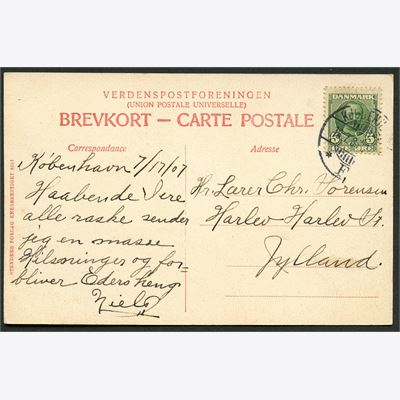 VERDENSPOSTFORENINGEN
(UNION POSTALE UNIVERSELLE)
BREVKORT — CARTE POSTALE
DANMARK
5 5
Correspondance
Adresse
København 7/17/07
Haabende I ere
alle raske sender
jeg en masse
Hilsninger og for-
bliver Eders heng.
Niels
Hr. Lærer Chr. Sørensen
Harlev Harlev St.
Jylland.